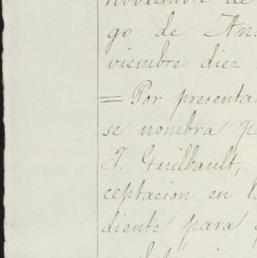 noviembre de
go de An
viembre diez
= Por presenta
se nombra p
J. Guilbault,
ceptacion en l
diente para